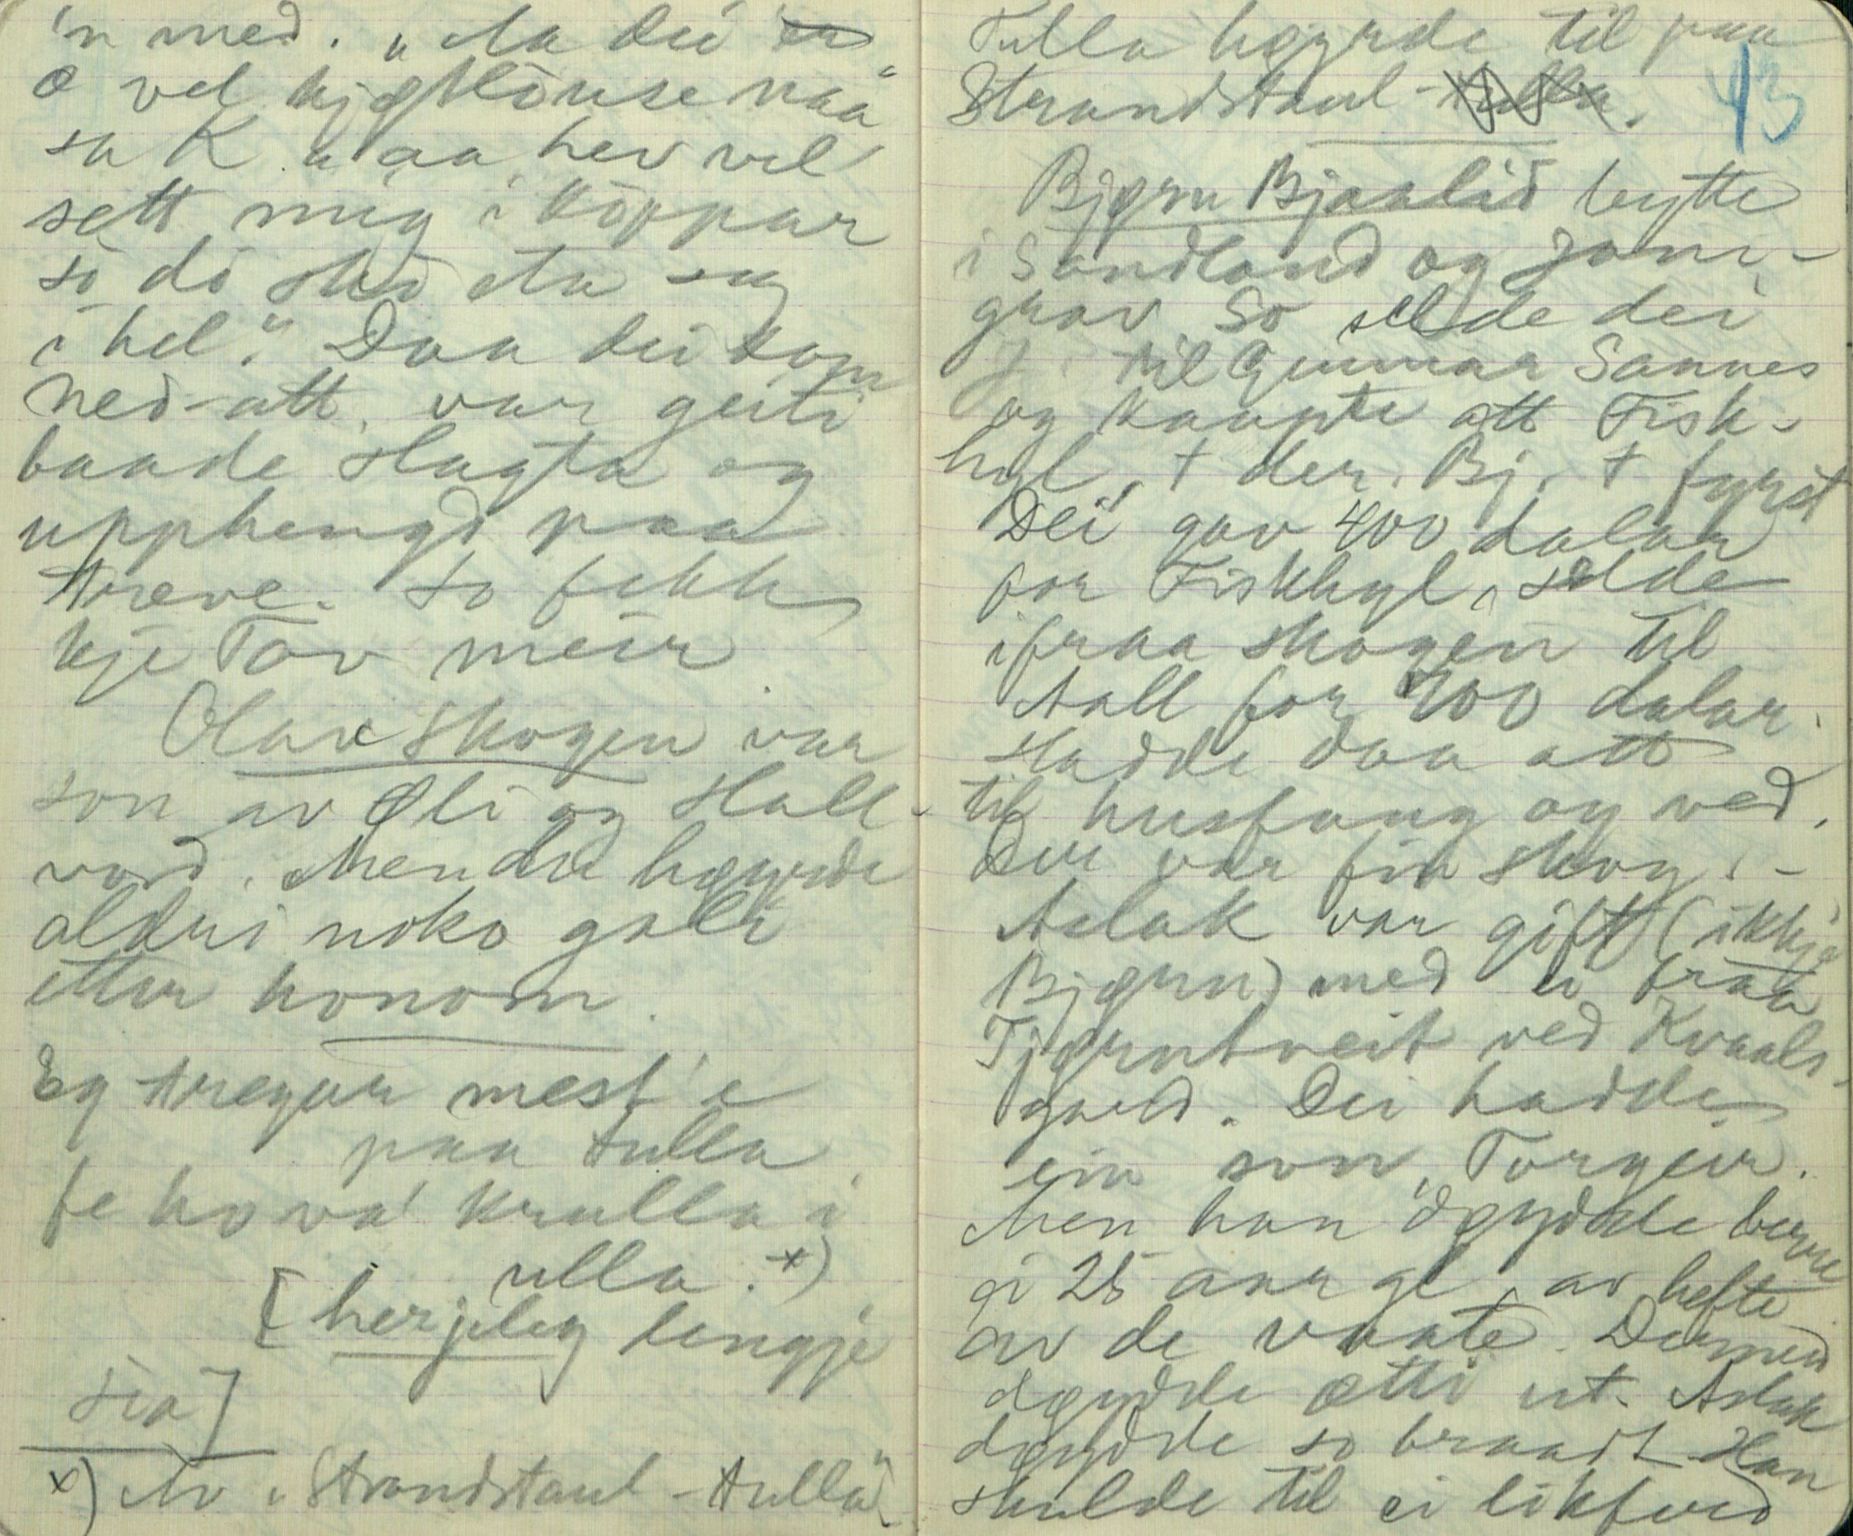 'n med. "Aa dei
æ vel kjøtlause naa"
sa K. "aa hev vel
sett meg i koppar
so dei ska eta seg
i hel." Daa dei kom
ned-att, var geiti
baade slagta og
upphengd paa
treve. So fekk
kje Tov meir.
Olav Skogen var
son av Øli og Hall-
vord. Men dei høyrde
aldri noko gale
etter honom.
Eg tregar mest 'e
paa tulla
fe ho va' krulla i
ulla. x)
[herjeleg lengje
sia]
x) Av "Strandstaul-tulla"
Tulla høyrde til paa
Strandstaul-tulla.
43
Bjørn Bjaalid bytte
i Sandland og Jam-
grav. So selde dei
J. til Gunnar Sannes
og kaupte att Fisk-
hyl, + der. Bj. + fyrst
Dei gav 400 dalar
for Fiskhyl, selde
ifraa skogen til
Aall for 700 dalar.
Hadde daa att
til husfang og ved.
Der var fin skog. -
Aslak var gift (ikkje
Bjørn) med ei fraa
Tjørntveit ved Kvaals-
gard. Dei hadde
ein son, Torgeir.
Men han døydde berre
ei 25 aar gl. av hefte
av de vaate. Dermed
døydde ætti ut. Aslak
døydde so braadt. Han
skulde til ei likferd